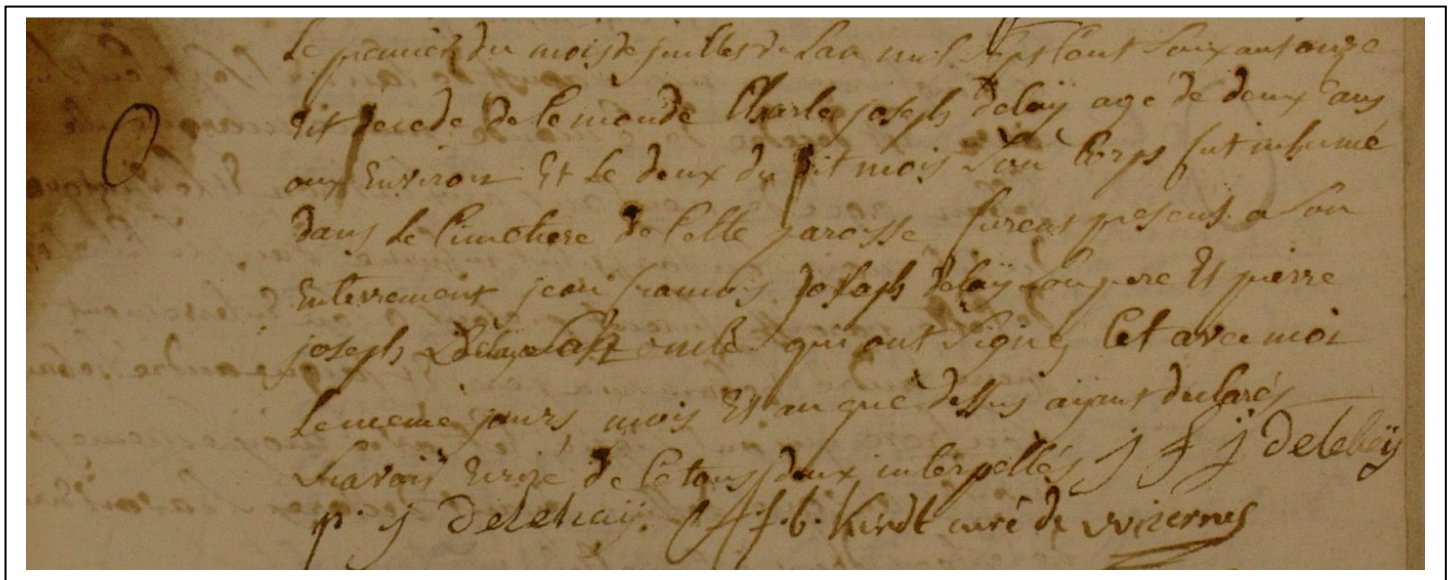 Le premier du mois de juillet de lan mil sept Cent Soixant onze
Est decede de Ce monde Charle joseph delaÿ agé de deux ans
ou Environ Et Le deux du dit mois Son Corps fut inhumé
dans Le Cimetiere de Cette paroisse furent presens a Son
Enterrement jean francois joseph delaÿ Son pere Et pierre
joseph oncle qui ont Signe Cet avec moi
Le meme jours mois Et an que dessus aÿant declarés
Scavoir Ecrire de Ce tous deux interpellés j f j delehaÿ
p. j delehaÿ. f. b. Kindt curé de wizernes